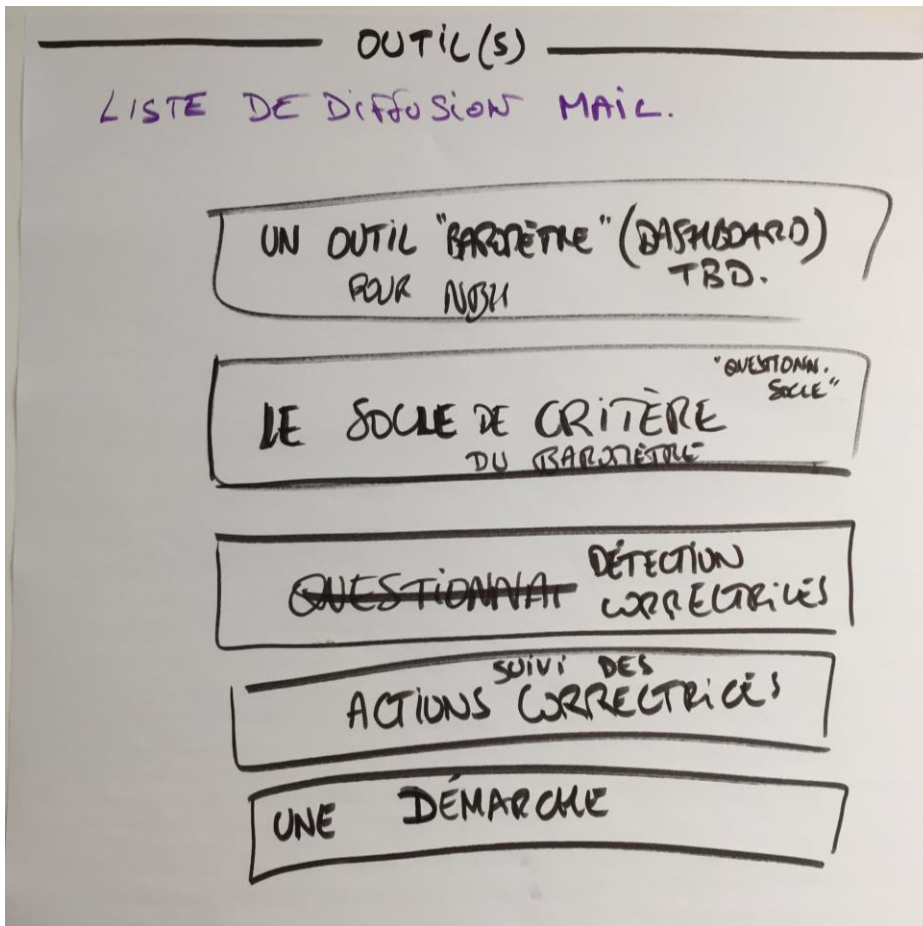 OUTIL(S)
LISTE DE DIFFUSION MAIL.
UN OUTIL "BAROMÈTRE" (DASHBOARD)
POUR NBH TBD.
"QUESTIONN.
SOCLE"
LE SOCLE DE CRITÈRE
DU BAROMÈTRE
QUESTIONNAI DÉTECTION
CORRECTRICES
SUIVI DES
ACTIONS CORRECTRICES
UNE DÉMARCHE